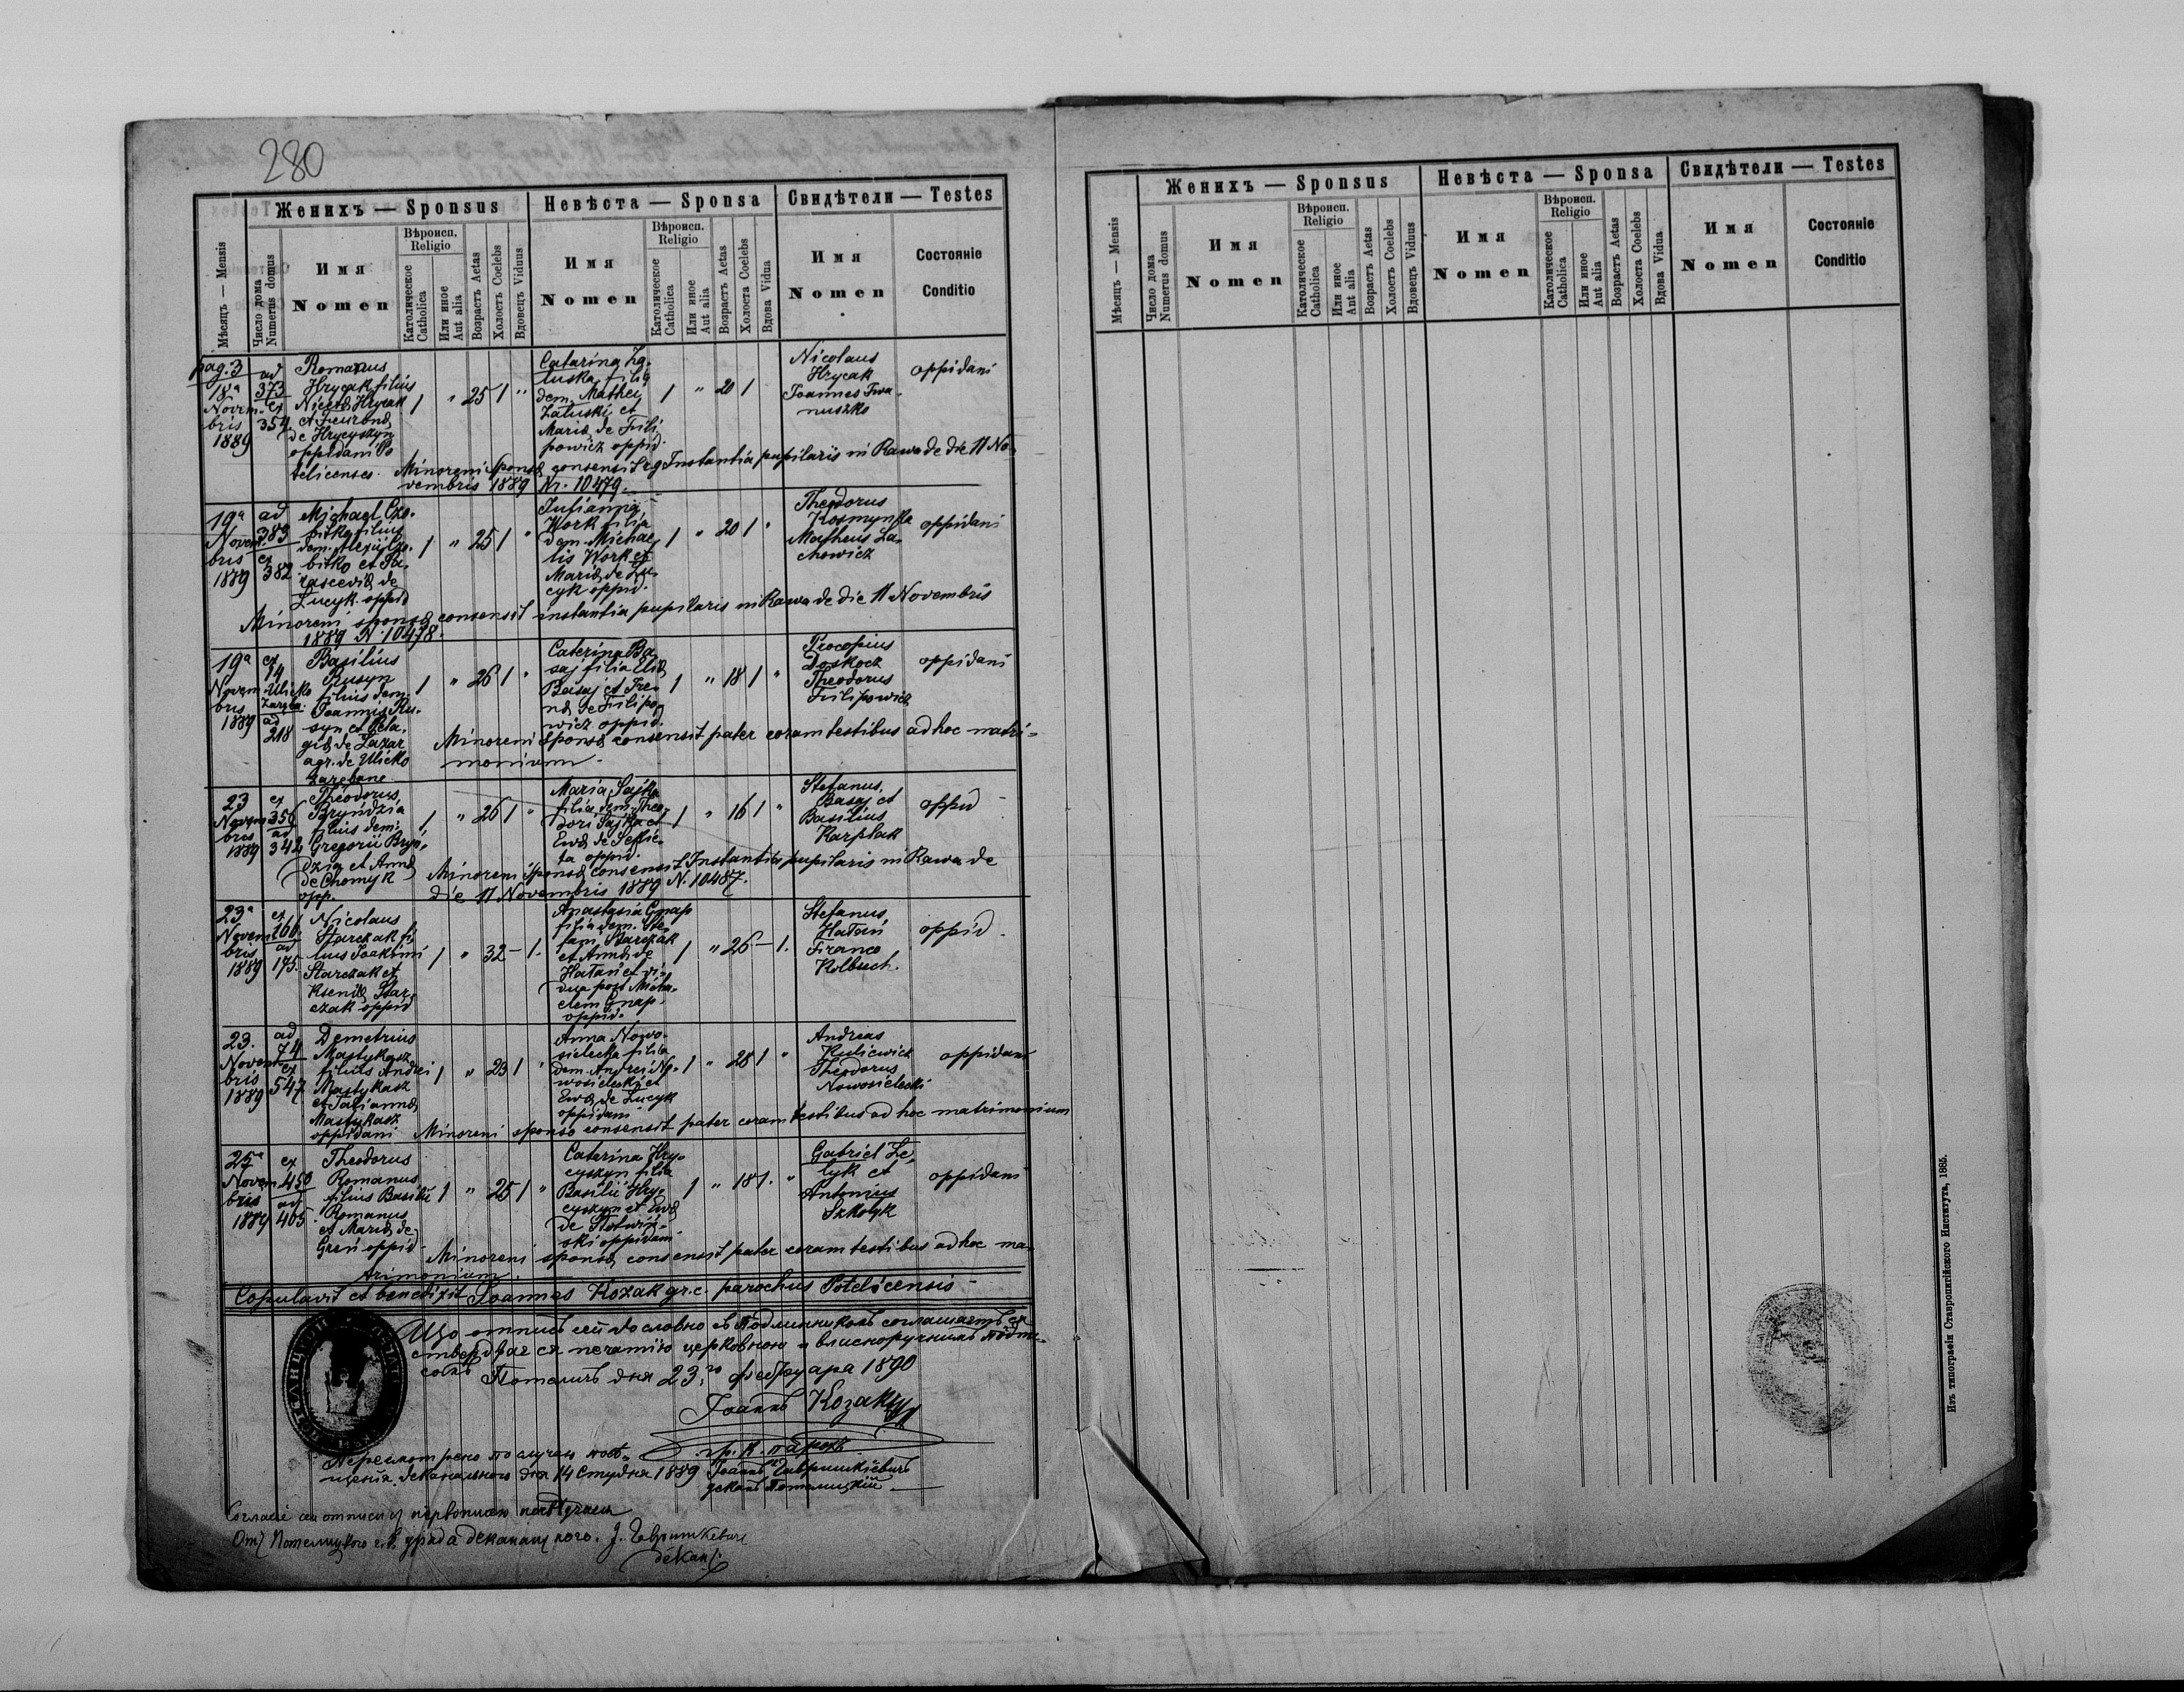 280
Женихъ — Sponsus
Невѣста — Sponsa
Свидѣтели — Testes
Мѣсяцъ — Mensis
Число дома
Numerus domus
Имя
Nomen
Вѣроисп.
Religio
Католическое
Catholica
Или иное
Aut alia
Возрастъ Aetas
Холостъ Coelebs
Вдовецъ Viduus
Имя
Nomen
Вѣроисп.
Religio
Католическое
Catholica
Или иное
Aut alia
Возрастъ Aetas
Холоста Coelebs
Вдова Vidua
Имя
Nomen
Состояніе
Conditio
pag. 3
18ª
Novem-
bris
1889
ad
373
ex
354
Romanus
Hrycak filius
Nicolai Hrycak
et
de Hrycyszyn
oppidani Po
telicenses.
1 " 25 1 "
Catarina Za-
luska filia
dem. Mathei
Załuski et
Mariæ de Fili
powicz oppid.
1 " 20 1
Nicolaus
Hrycak
Joannes Iwa-
nuszko
oppidani
Minoreni Sponsæ consensit Instantia pupilaris in Rawa de die 11 No-
vembris 1889 Nr. 10479.
19ª
Novem
bris
1889
ad
383
ex
382
Michael
filius
dem.
bitko et Pa-
rasceviæ de
Lucyk oppid
1 " 25 1 "
Julianna
Work filia
dem. Michae
lis Work et
Mariæ de Lu-
cyk oppid.
1 " 20 1 "
Theodorus
Kosmynka
Matheus La-
chowicz
oppidani
Minoreni sponsæ consensit instantia pupilaris in Rawa de die 11 Novembris
1889 N. 10478.
19ª
Novem
bris
1889
ex
14
Ulicko
Zaręba.
ad
218
Basilius
Rusyn
filius dem.
Joannis Ru-
syn et Pela-
giæ de Lazar
agr. de Ulicko
Zarębane
1 " 26 1 "
Caterina Ba
saj filia Eliæ
Basaj et Ire-
næ de Filipo
wicz oppid.
1 " 18 1 "
Procopius
Doskocz
Theodorus
Filipowicz
oppidani
Minoreni Sponsæ consensit pater coram testibus ad hoc matri-
monium
23
Novem
bris
1889
ex
356
ad
342
Theodorus
Bryndzia
filius dem.
Gregorii Bryn-
dzia et Annæ
de Chomyk
opp.
1 " 26 1 "
Maria Sajka
filia dem. Theo-
dori Sajka et
Evæ de
ta oppid.
1 " 16 1 "
Stefanus
Basaj et
Basilius
Karplak
oppid
Minoreni Sponsæ consensit Instantia pupilaris in Rawa de
die 11 Novembris 1889 N. 10487.
23ª
Novem
bris
1889
ex
166
ad
175.
Nicolaus
Starczak fi
lius Joakimi
Starczak et
Kseniæ Star
czak oppid
1 " 32 – 1.
Anastasia Gnap
filia dem. Ste
fani Starczak
et Annæ de
Hatan et vi-
dua post Micha-
elem Gnap.
oppid.
1 " 26 – 1.
Stefanus
Hatan
Franco
Kolbuch.
oppid.
23.
Novem
bris
1889
ad
74
ex
547
Demetrius
Mastykasz
filius Andrei
Mastykasz
et Tatiannæ
Mastykasz
oppidani
1 " 23 1 "
Anna Nowo-
sielecka filia
dem. Andrei No-
wosielecki et
Evæ de Lucyk
oppidani
1 " 28 1 "
Andreas
Kuliewicz
Theodorus
Nowosielecki
oppidani
Minoreni sponso consensit pater coram testibus ad hoc matrimonium
25ª
Novem
bris
1889
ex
450
ad
405
Theodorus
Romanus
filius Basilii
Romanus
et Mariæ de
Greń oppid.
1 " 25 1 "
Caterina Hry-
cyszyn filia
Basilii Hry-
cyszyn et Evæ
de Slotwiń-
ski oppidani
1 " 18 1. "
Gabriel Ze-
lyk et
Antonius
Szkolyk
oppidani
Minoreni sponsæ consensit pater coram testibus ad hoc ma-
trimonium.
Copulavit et benedixit Joannes Kozak gr. c. parochus Potelicensis
Що отпись сей дословно съ подлинникомъ соглашаетъ ся
ствердфає ся печатію церковною и власноручнымъ подпи-
сомъ
Потеличъ дня 23го фебруара 1890
Іоаннъ Козакъ
гр. к. парохъ
дня 14 Студня 1889 Іоаннъ Гавришкевичъ
деканъ Потелицкій
Согласіе
Отъ Потелицкого уряда деканального. І. Гавришкевичъ
декан
Женихъ — Sponsus
Невѣста — Sponsa
Свидѣтели — Testes
Мѣсяцъ — Mensis
Число дома
Numerus domus
Имя
Nomen
Вѣроисп.
Religio
Католическое
Catholica
Или иное
Aut alia
Возрастъ Aetas
Холостъ Coelebs
Вдовецъ Viduus
Имя
Nomen
Вѣроисп.
Religio
Католическое
Catholica
Или иное
Aut alia
Возрастъ Aetas
Холоста Coelebs
Вдова Vidua
Имя
Nomen
Состояніе
Conditio
Изъ типографіи Ставропигійского Института, 1885.